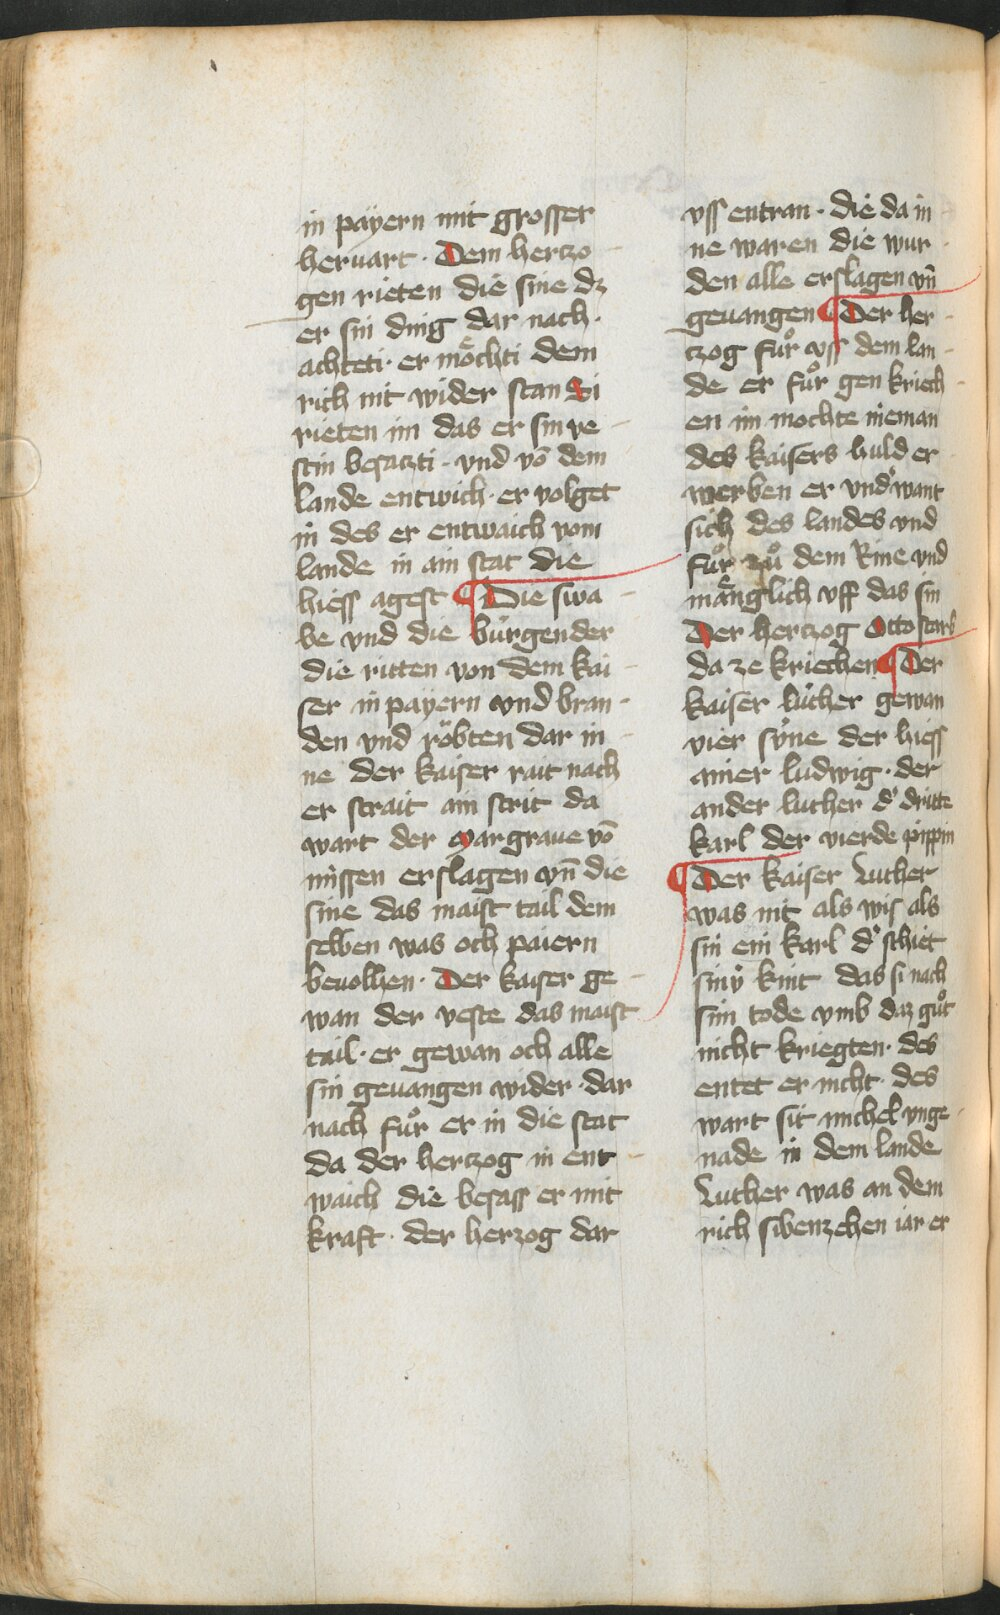 in paÿern mit grosser
heruart · Dem hertzo
gen rieten die sine dz
er sin ding dar nach ·
achteti · er moͤchti dem
rich nit wider stan Si
rieten im das er sin ve
stin besatzti · vnd vō dem
lande entwich · er volget
in des er entwaich vom
lande in ain stat die
hiess agest ¶ Die swa
be vnd die bùrgender
die ritten von dem kai
ser in payern vnd bran
den vnd röbten dar in
ne der kaiser rait nach
er strait ain strit da
wart der margraue vō
missen erslagen vn̄ die
sine das maist tail dem
selben was och paiern
beuolhen · Der kaiser ge
wan der veste das maist
tail · er gewan och alle
sin geuangen wider · dar
nach fuͦr er in die stat
da der hertzog in ent
waich die besass er mit
kraft · der herzog dar
vss entran · die da in
ne waren die wur
den alle erslagen vn̄
geuangen ¶ Der her
tzog fuͦr vss dem lan
de er fuͦr gen kriech
en im mochte nieman
des kaisers huld er
werben er vnd͛want
sich des landes vnd
fuͦr zuͦ dem Rine vnd
maͤnglich vff das sin
Der hertzog Otto starb
da ze kriechen ¶ Der
kaiser lùther gewan
vier sỳne der hiess
ainer ludwig · der
ander luther d͛ dritte
karl der vierde pippin
¶ Der kaiser Luther
was nit als wis als
sin eni karl d͛ schiet
sinù kint das si nach
sim tode vmb daz guͦt
nicht kriegten · des
entet er nicht · des
wart sit michel vnge
nade in dem lande
Luther was an dem
rich sibenzehen iar er